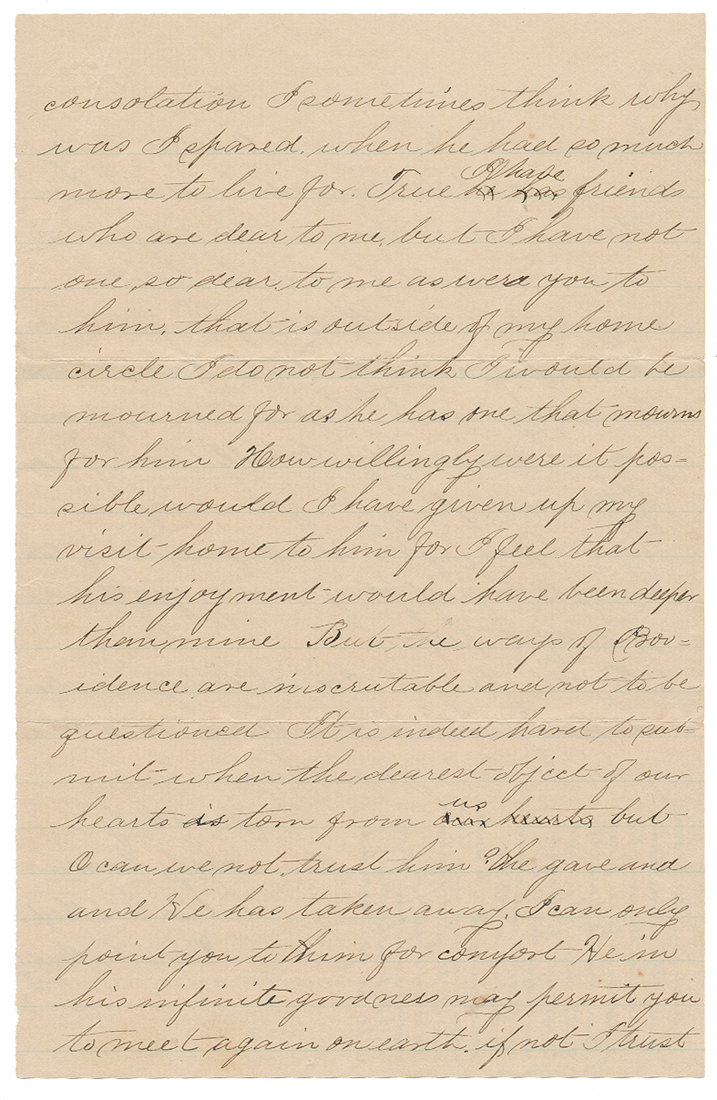 consolation I sometimes think why
was I spared. when he had so much
more to live for. True I have friends
who are dear to me, but I have not
one, so dear to me as were you to
him. that is outside of my home
circle I do not think I would be
mourned for as he has one that mourns
for him How willingly were it pos=
sible would I have given up my
visit home to him for I feel that
his enjoyment would have been deeper
than mine But the ways of Prov=
idence are inscrutable and not to be
questioned It is indeed hard to sub=
mit when the dearest object of our
hearts is torn from us but
O can we not trust him? he gave and
and He has taken away. I can only
point you to Him for comfort He in
his infinite goodness may permit you
to meet again on earth. if not I trust